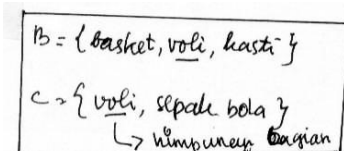 B = {basket, voli, kasti}
C = {voli, sepak bola}
↳ himpunan bagian